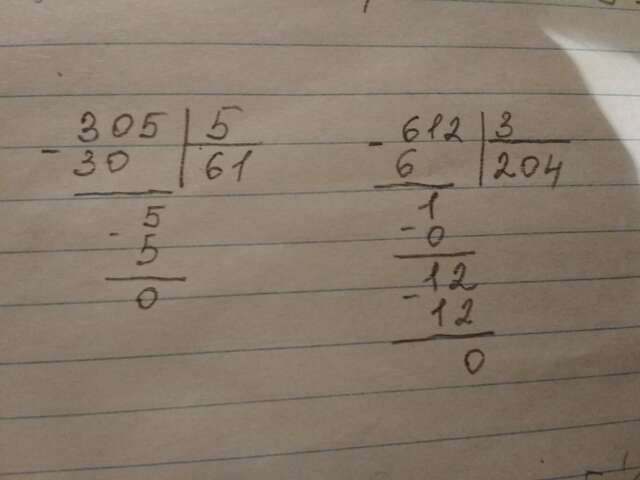 305 5
- 30 61
- 5
5
0
- 612 3
6 204
1
- 0
12
- 12
0